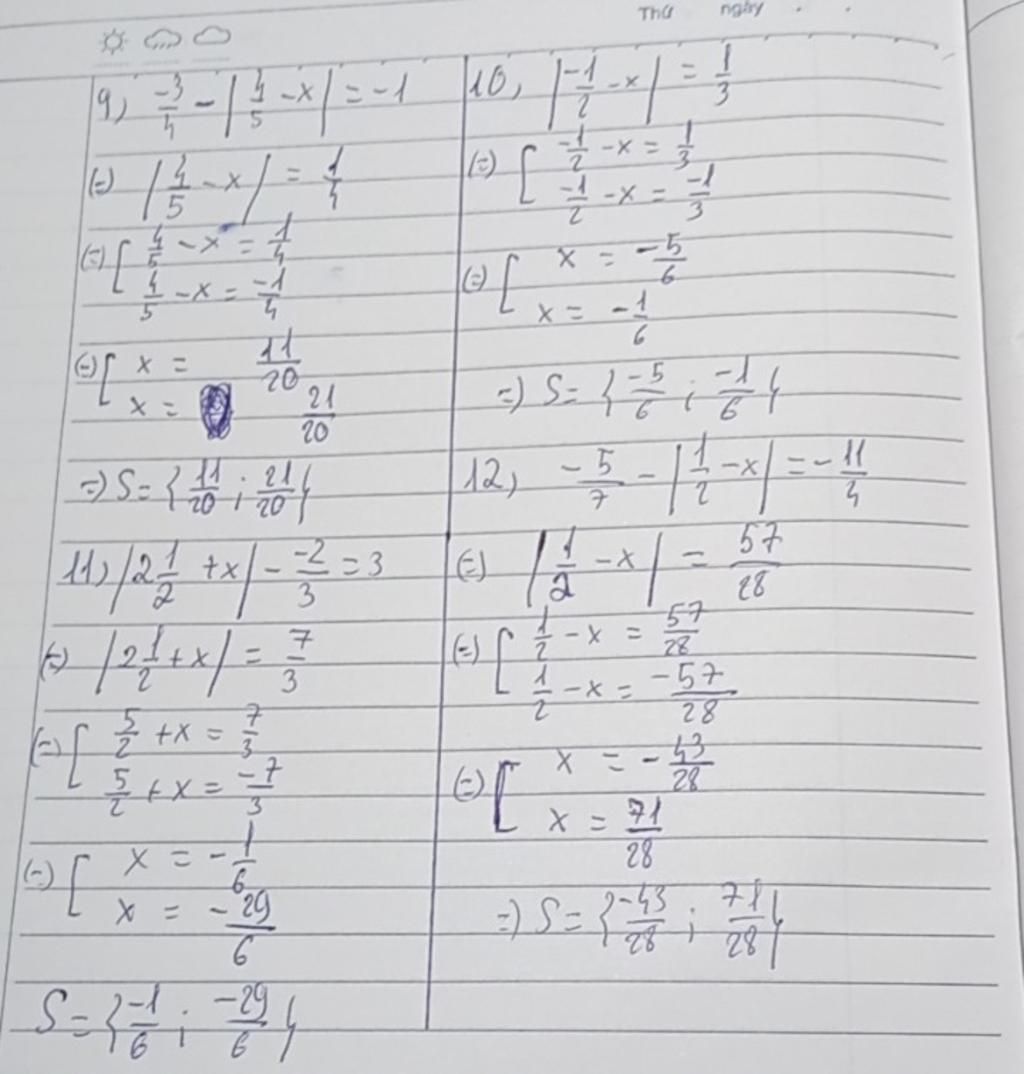 Thứ ngày . .
9, -3/4 - |4/5 - x| = -1
(=) |4/5 - x| = 1/4
(=) [ 4/5 - x = 1/4
4/5 - x = -1/4
(=) [ x = 11/20
x = 21/20
=) S = {11/20 ; 21/20}
11) |2 1/2 + x| - -2/3 = 3
(=) |2 1/2 + x| = 7/3
(=) [ 5/2 + x = 7/3
5/2 + x = -7/3
(=) [ x = -1/6
x = -29/6
S = {-1/6 ; -29/6}
10, |-1/2 - x| = 1/3
(=) [ -1/2 - x = 1/3
-1/2 - x = -1/3
(=) [ x = -5/6
x = -1/6
=) S = {-5/6 ; -1/6}
12, -5/7 - |1/2 - x| = -11/4
(=) |1/2 - x| = 57/28
(=) [ 1/2 - x = 57/28
1/2 - x = -57/28
(=) [ x = -43/28
x = 71/28
=) S = {-43/28 ; 71/28}